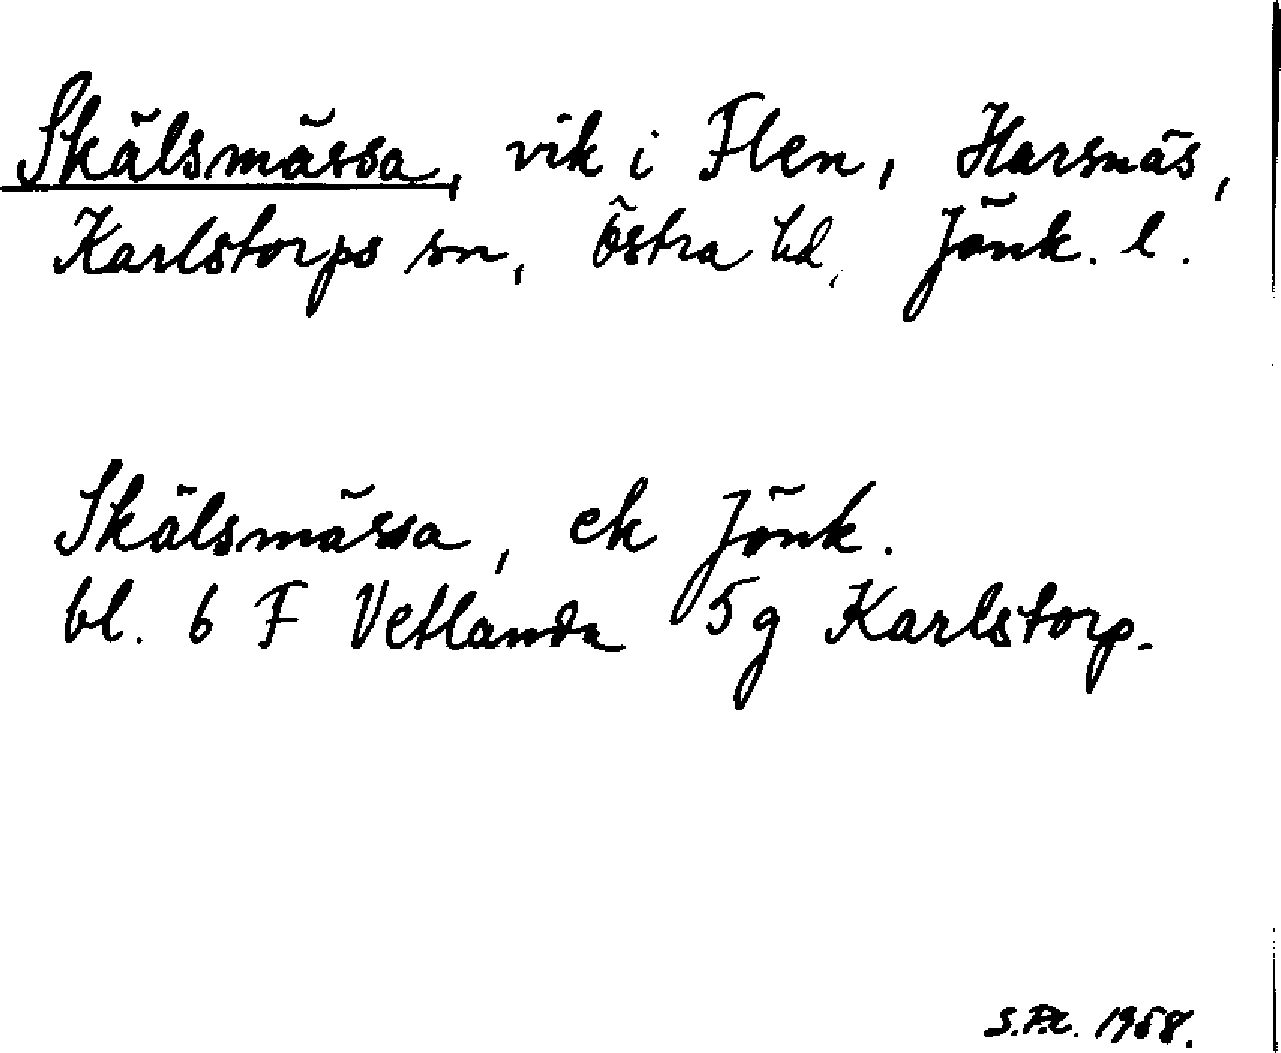 Skälsmässa, vik i Flen, Harsnäs,
Karlstorps sn, Östra hd, Jönk. l.
Skälsmässa, ek Jönk.
bl. 6 F Vetlanda 5g Karlstorp.
1958.